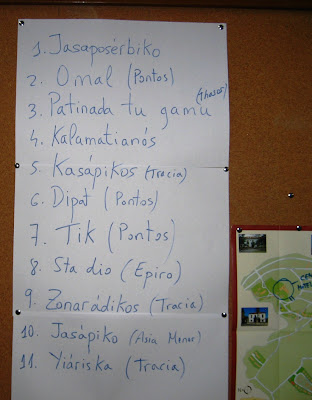 1. Jasaposérbiko
2. Omal (Pontos)
3. Patinada tu gamu (Thasos)
4. Kalamatianós
5. Kasápikos (Tracia)
6. Dipat (Pontos)
7. Tik (Pontos)
8. Sta dio (Epiro)
9. Zonarádikos (Tracia)
10. Jasápiko (Asia Menor)
11. Yiáriska (Tracia)